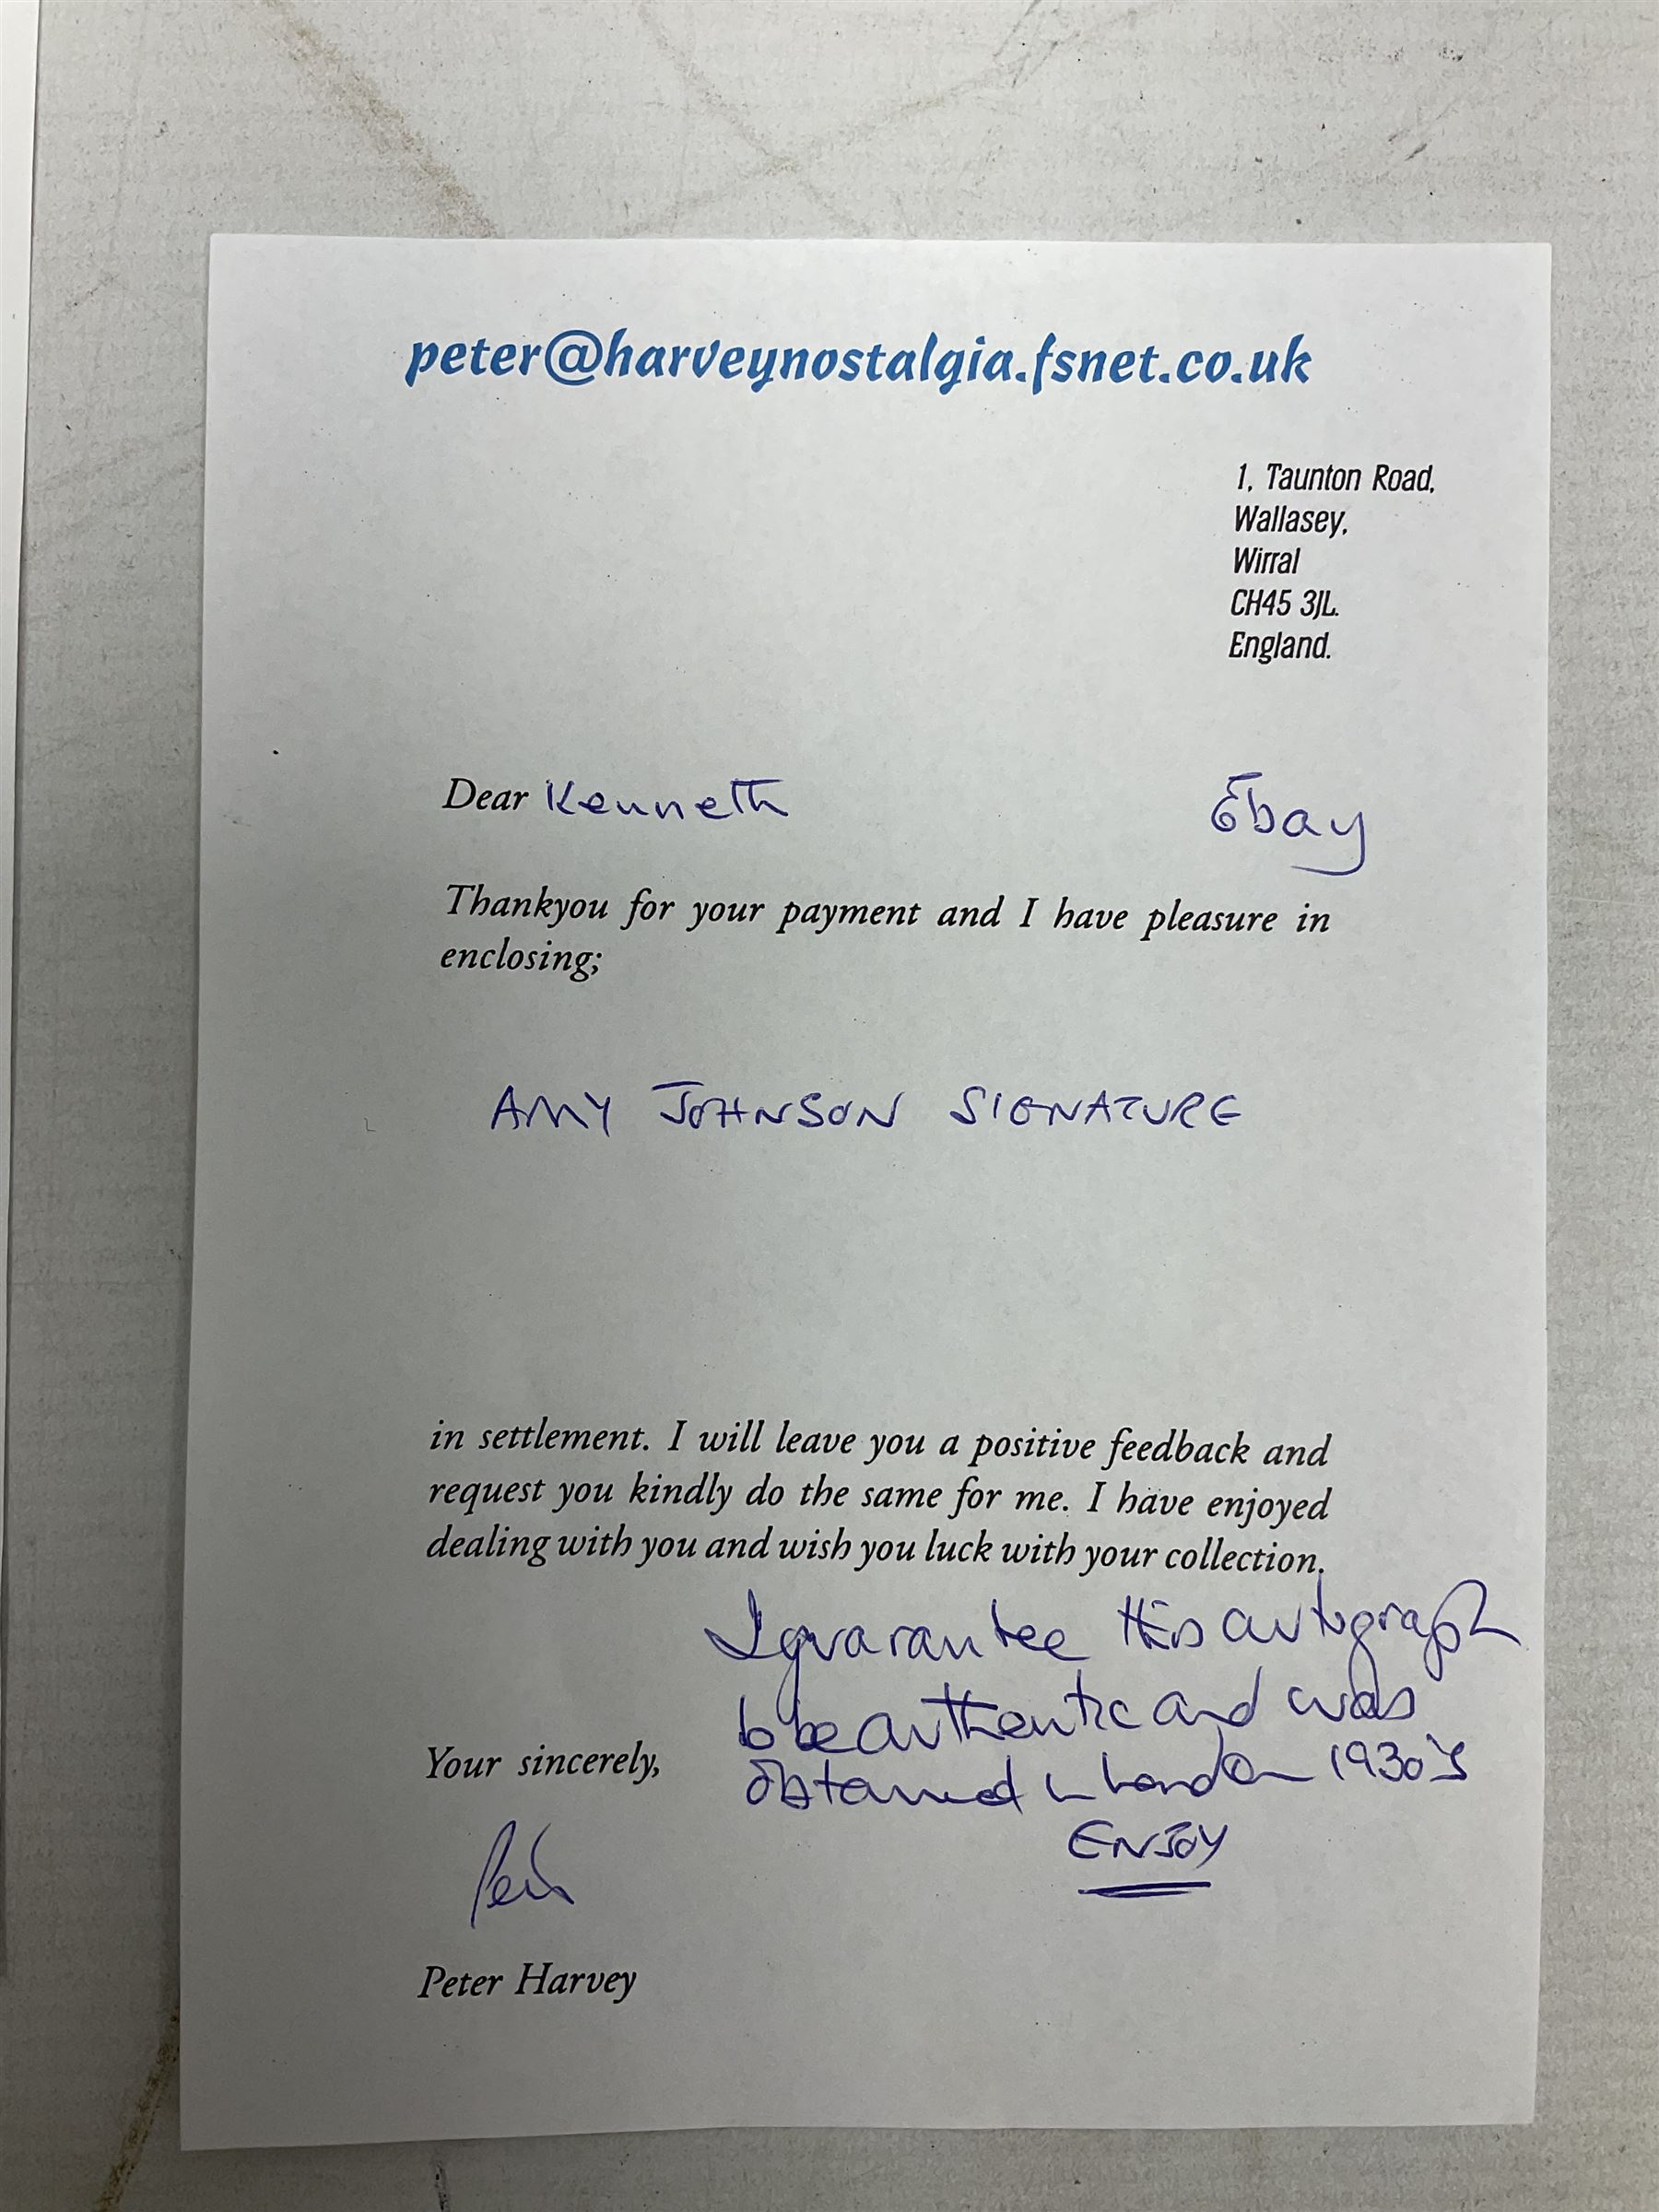 peter@harveynostalgia.fsnet.co.uk
1, Taunton Road,
Wallasey,
Wirral
CH45 3JL.
England.
Dear Kenneth
Ebay
Thankyou for your payment and I have pleasure in
enclosing;
AMY JOHNSON SIGNATURE
in settlement. I will leave you a positive feedback and
request you kindly do the same for me. I have enjoyed
dealing with you and wish you luck with your collection.
I guarantee this autograph
to be authentic and was
obtained in London 1930's
ENJOY
Your sincerely,
Peter
Peter Harvey